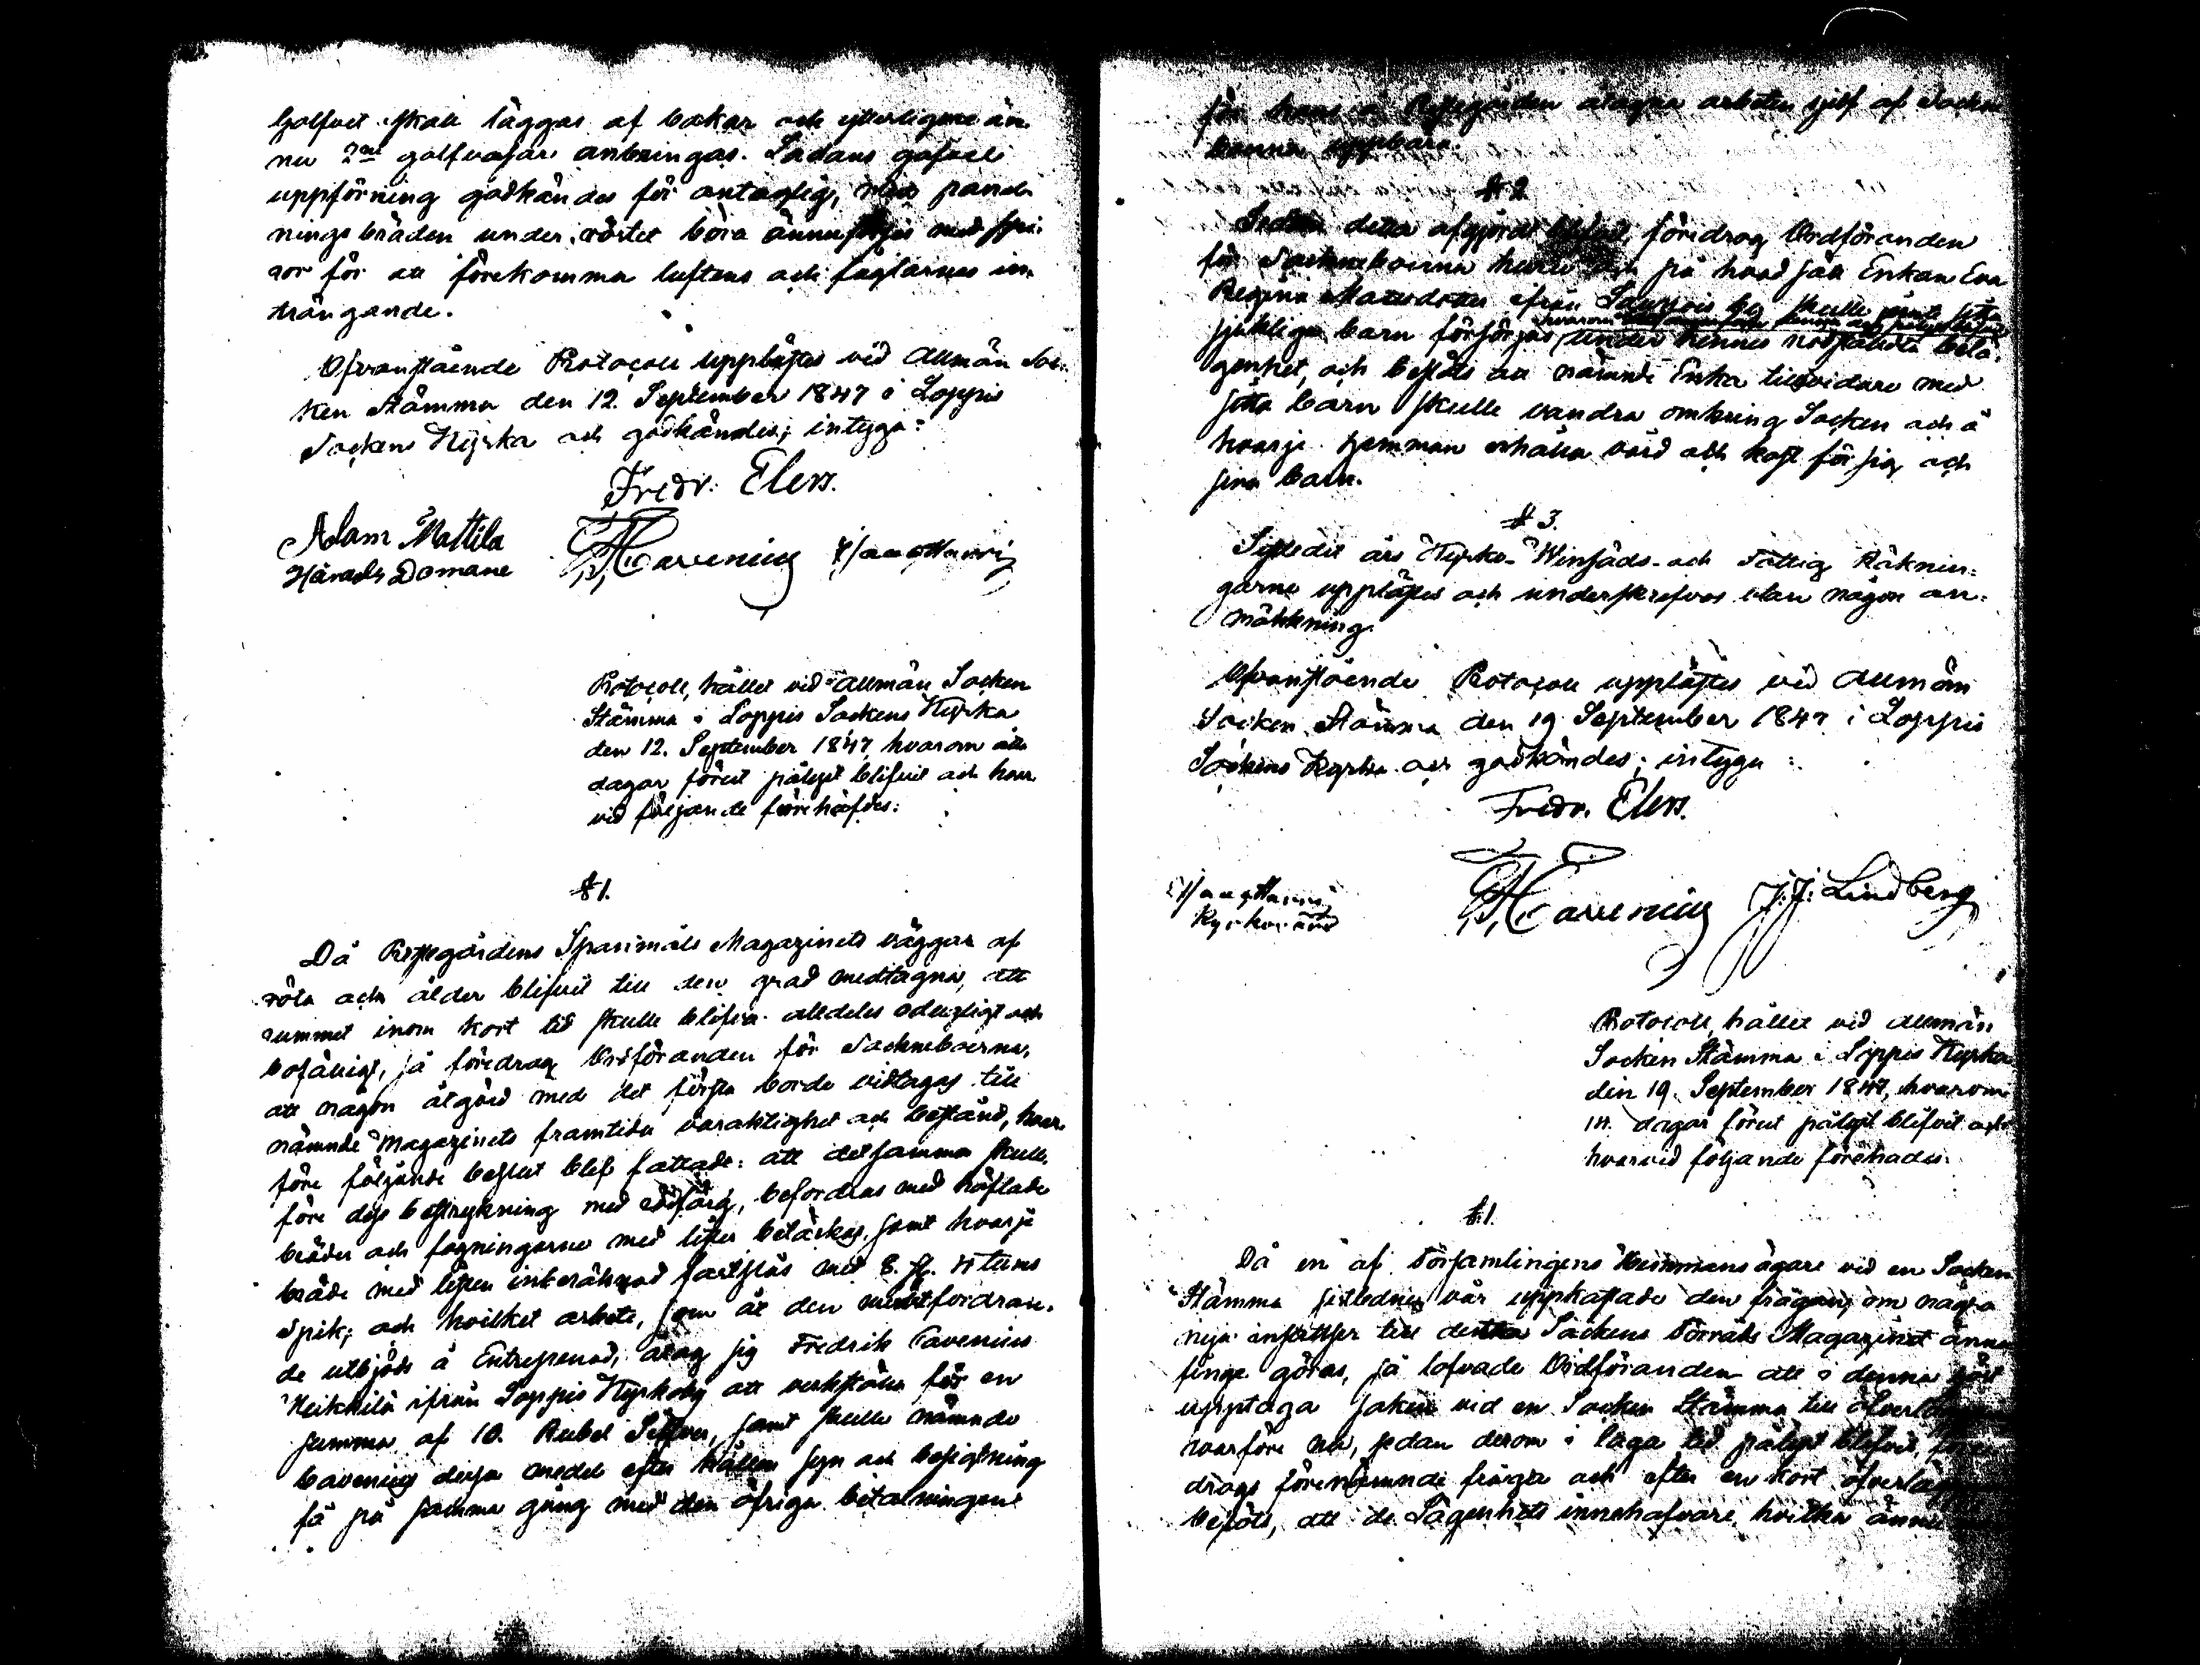 Golfvet skall läggas af bakar och ytterligare än
nu 2ne golfvasar anbringas. Sådans gafvel
uppförning godkändes för antaglig, men pand
ningsbräden under röstet böra ännu med spi
ror för att förekomma luftens och foglarnes in
trängande.
Ofvanstående Protocoll upplästes vid Allmän Soc-
ken Stämma den 12. September 1847 i Loppis
Sockens Kyrka och godkändes; intyga:
Fredr. Elers.
Adam Mattila
Härads Domare
Protocoll, hållet vid Allmän Socken
Stämma i Loppis Sockens Kyrka
den 12. September 1847, hvarom åtta
dagar förut pålyst blifvit och hvar
vid följande förehafdes:
§ 1.
Då Prestegårdens Spanmåls Magazinets väggar af
röta och ålder blifvit till den grad medtagna, att
rummet inom kort tid skulle blifva alldeles odugligt och
bofälligt, så föredrog Ordföranden för Sockneboerna,
att någon åtgärd med det första borde vidtagas till
nämnde Magazinets framtida varaktighet och bestånd, hvar
före följande beslut blef fattadt: att detsamma skulle
före dess bestrykning med rödfärg, befordras med höflade
bräder och fogningarne med lister betäckas, samt hvarje
bräde med listen inberäknad fastslås med 8. st. 4 tums
Spik; och hvilket arbete, som åt den minstfordran-
de utbjöds å Entreprenad, åtog sig Fredrik Cavenius
Heikkilä ifrån Loppis Kyrkoby att verkställa för en
summa af 10. Rubel Silfver, samt skulle nämnde
Cavenius dessa medel efter hållen syn och besigtning
få på samma gång med den öfriga betalningen
för hans å Prestegården åtagna arbeten sjelf af Sockne
boerna uppbära.
§ 2.
Sedan detta afgjordt blifvit, föredrog Ordföranden
för Sockneboerna huru och på hvad sätt Enkan Eva
Regina Matsdotter ifrån by skulle
sjukliga barn försörjas, under hennes nödstälda belä-
genhet, och beslöts att nämnde Enka tillsvidare med
sitta barn skulle vandra omkring Socken och å
hvarje hemman erhålla vård och kost för sig och
sina barn.
§ 3.
Sistledit års Kyrko- Winsäds- och Fattig Räknin-
garne upplästes och underskrefvos utan någon an-
märkning.
Ofvanstående Protocoll upplästes vid Allmän
Socken Stämma den 19 September 1847 i Loppis
Sockens Kyrka och godkändes; intyga:
Fredr. Elers.
Kyrkovärd
J. J. Lindberg
Protocoll, hållet vid Allmän
Socken Stämma i Loppis Kyrka
den 19. September 1847, hvarom
14. dagar förut pålyst blifvit och
hvarvid följande förehades:
§ 1.
Då en af Församlingens Hemmansägare vid en Socken
Stämma sistledne vår uppkastade den frågan, om några
nya insatser till detta Sockens Förråds Magazinet ännu
finge göras, så lofvade Ordföranden att i denna höst
upptaga saken vid en Socken Stämma till
varföre nu, sedan derom i laga tid pålyst blifvit, före
drogs förenämnde fråga och efter en kort öfverlägg
beslöts, att de Lägenhets innehafvare, hvilka ännu